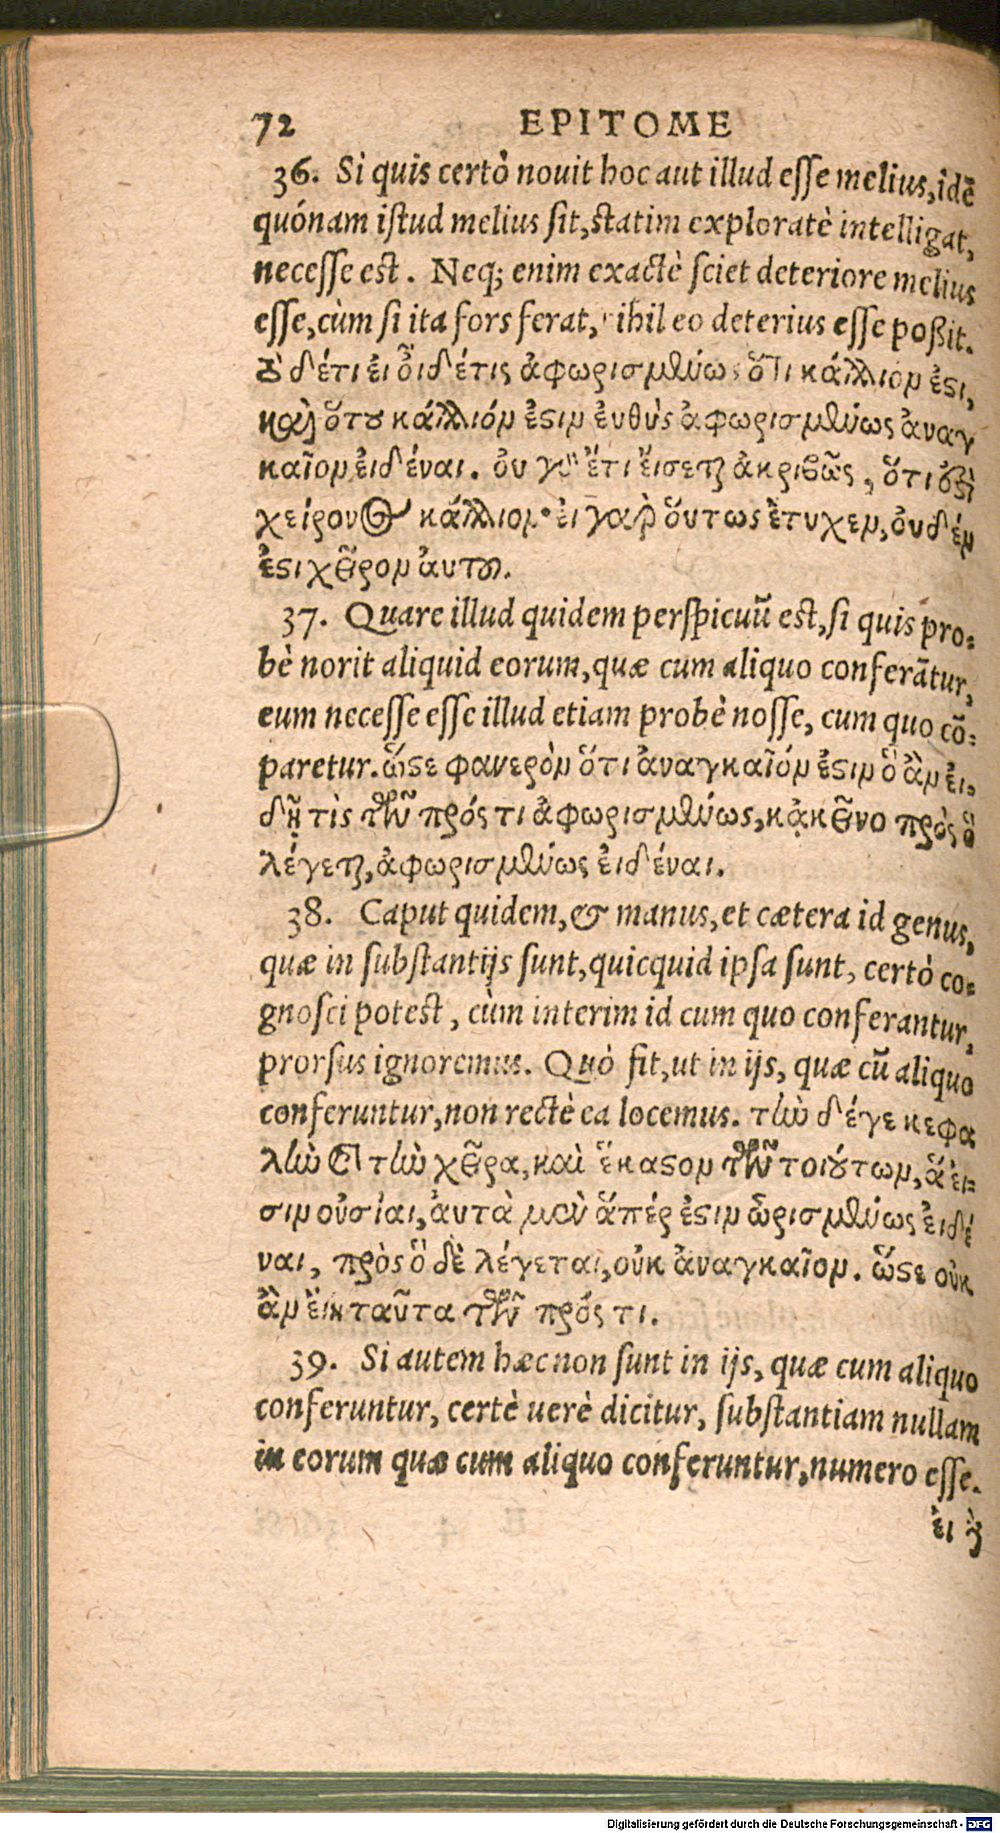 72 EPITOME
36. Si quis certò novit hoc aut illud esse melius, idẽ
quónam istud melius sit, statim exploratè intelligat,
necesse est. Neq; enim exactè sciet deteriore melius
esse, cùm si ita fors ferat, nihil eo deterius esse poßit.
ἔτι εἰ οἶδέ τις ἀφωρισμένως ὅτι κάλλιον ἐστι,
καὶ ὅτου κάλλιόν ἐστιν εὐθὺς ἀφωρισμένως ἀναγ
καῖον εἰδέναι. οὐ γὰρ ἔτι εἴσεται ἀκριβῶς, ὅτι ἐστὶ
χείρονος κάλλιον· εἰ γαρ οὕτως ἔτυχεν, οὐδέν
ἐστι χεῖρον αὐτοῦ.
37. Quare illud quidem perspicuũ est, si quis pro-
bè norit aliquid eorum, quæ cum aliquo conferãtur,
eum necesse esse illud etiam probè nosse, cum quo cõ-
paretur. ὥστε φανερὸν ὅτι ἀναγκαῖόν ἐστιν ὃ ἂν εἰ-
δῇ τὶς τῶν πρός τι ἀφωρισμένως, κᾀκεῖνο πρὸς ὃ
λέγεται, ἀφωρισμένως εἰδέναι.
38. Caput quidem, & manus, et cætera id genus,
quæ in substantijs sunt, quicquid ipsa sunt, certò co-
gnosci potest, cùm interim id cum quo conferantur,
prorsus ignoremus. Quò fit, ut in ijs, quæ cũ aliquo
conferuntur, non rectè ea locemus. τὴν δέ γε κεφα
λὴν καὶ τὴν χεῖρα, καὶ ἕκαστον τῶν τοιούτων, ἅ εἰ-
σιν οὐσίαι, αὐτὰ μὲν ἅπέρ ἐστιν ὡρισμένως εἰδέ
ναι, πρὸς ὃ δὲ λέγεται, οὐκ ἀναγκαῖον. ὥστε οὐκ
ἂν εἴη ταῦτα τῶν πρός τι.
39. Si autem hæc non sunt in ijs, quæ cum aliquo
conferuntur, certè uerè dicitur, substantiam nullam
in eorum quæ cum aliquo conferuntur, numero esse.
εἰ
Digitalisierung gefördert durch die Deutsche Forschungsgemeinschaft - DFG